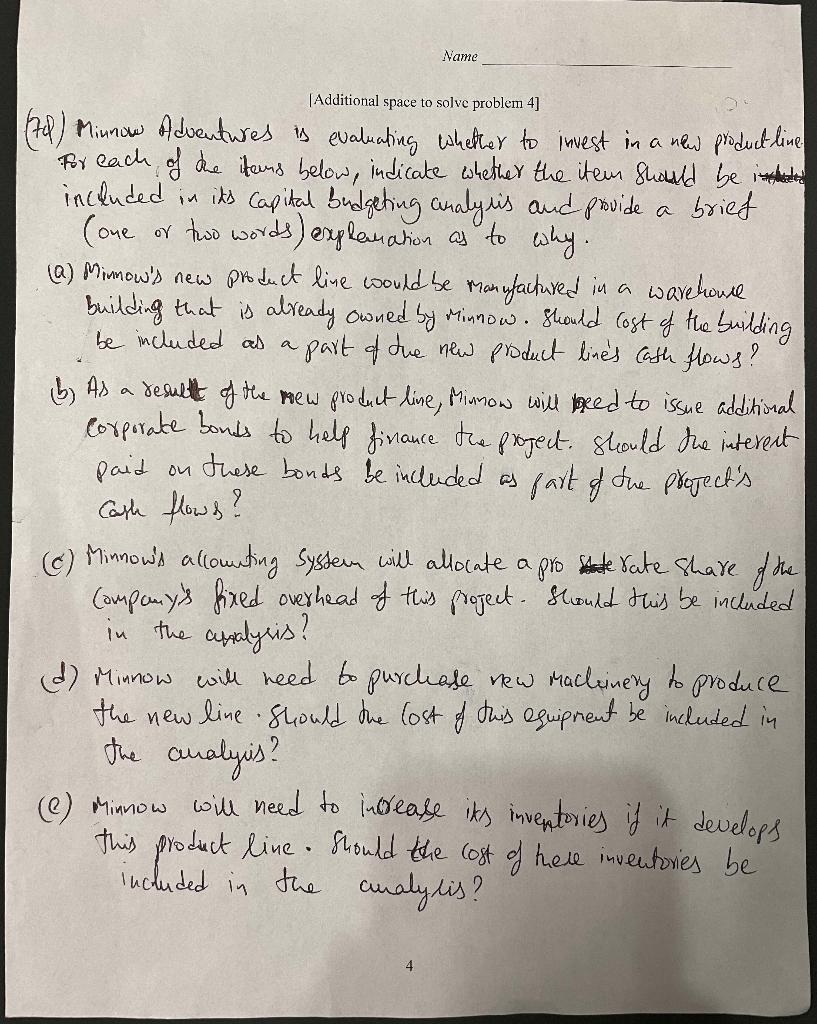 Name
[Additional space to solve problem 4]
Minnow Adventures is evaluating whether to invest in a new product line.
For each, of the items below, indicate whether the item should be
included in its capital budgeting analysis and provide a brief
(one or two words) explanation as to why.
(a) Minnow's new product line would be manufactured in a warehouse
building that is already owned by Minnow. Should cost of the building
be included as a part of the new product line's cash flows?
(b) As a result of the new product line, Minnow will need to issue additional
corporate bonds to help finance the project. Should the interest
paid on these bonds be included as part of the project's
cash flows?
(c) Minnow's accounting system will allocate a pro rate share of the
company's fixed overhead of this project. Should this be included
in the analysis?
(d) Minnow will need to purchase new machinery to produce
the new line. Should the cost of this equipment be included in
the analysis?
(e) Minnow will need to increase its inventories if it develops
this product line. Should the cost of these inventories be
included in the analysis?
4